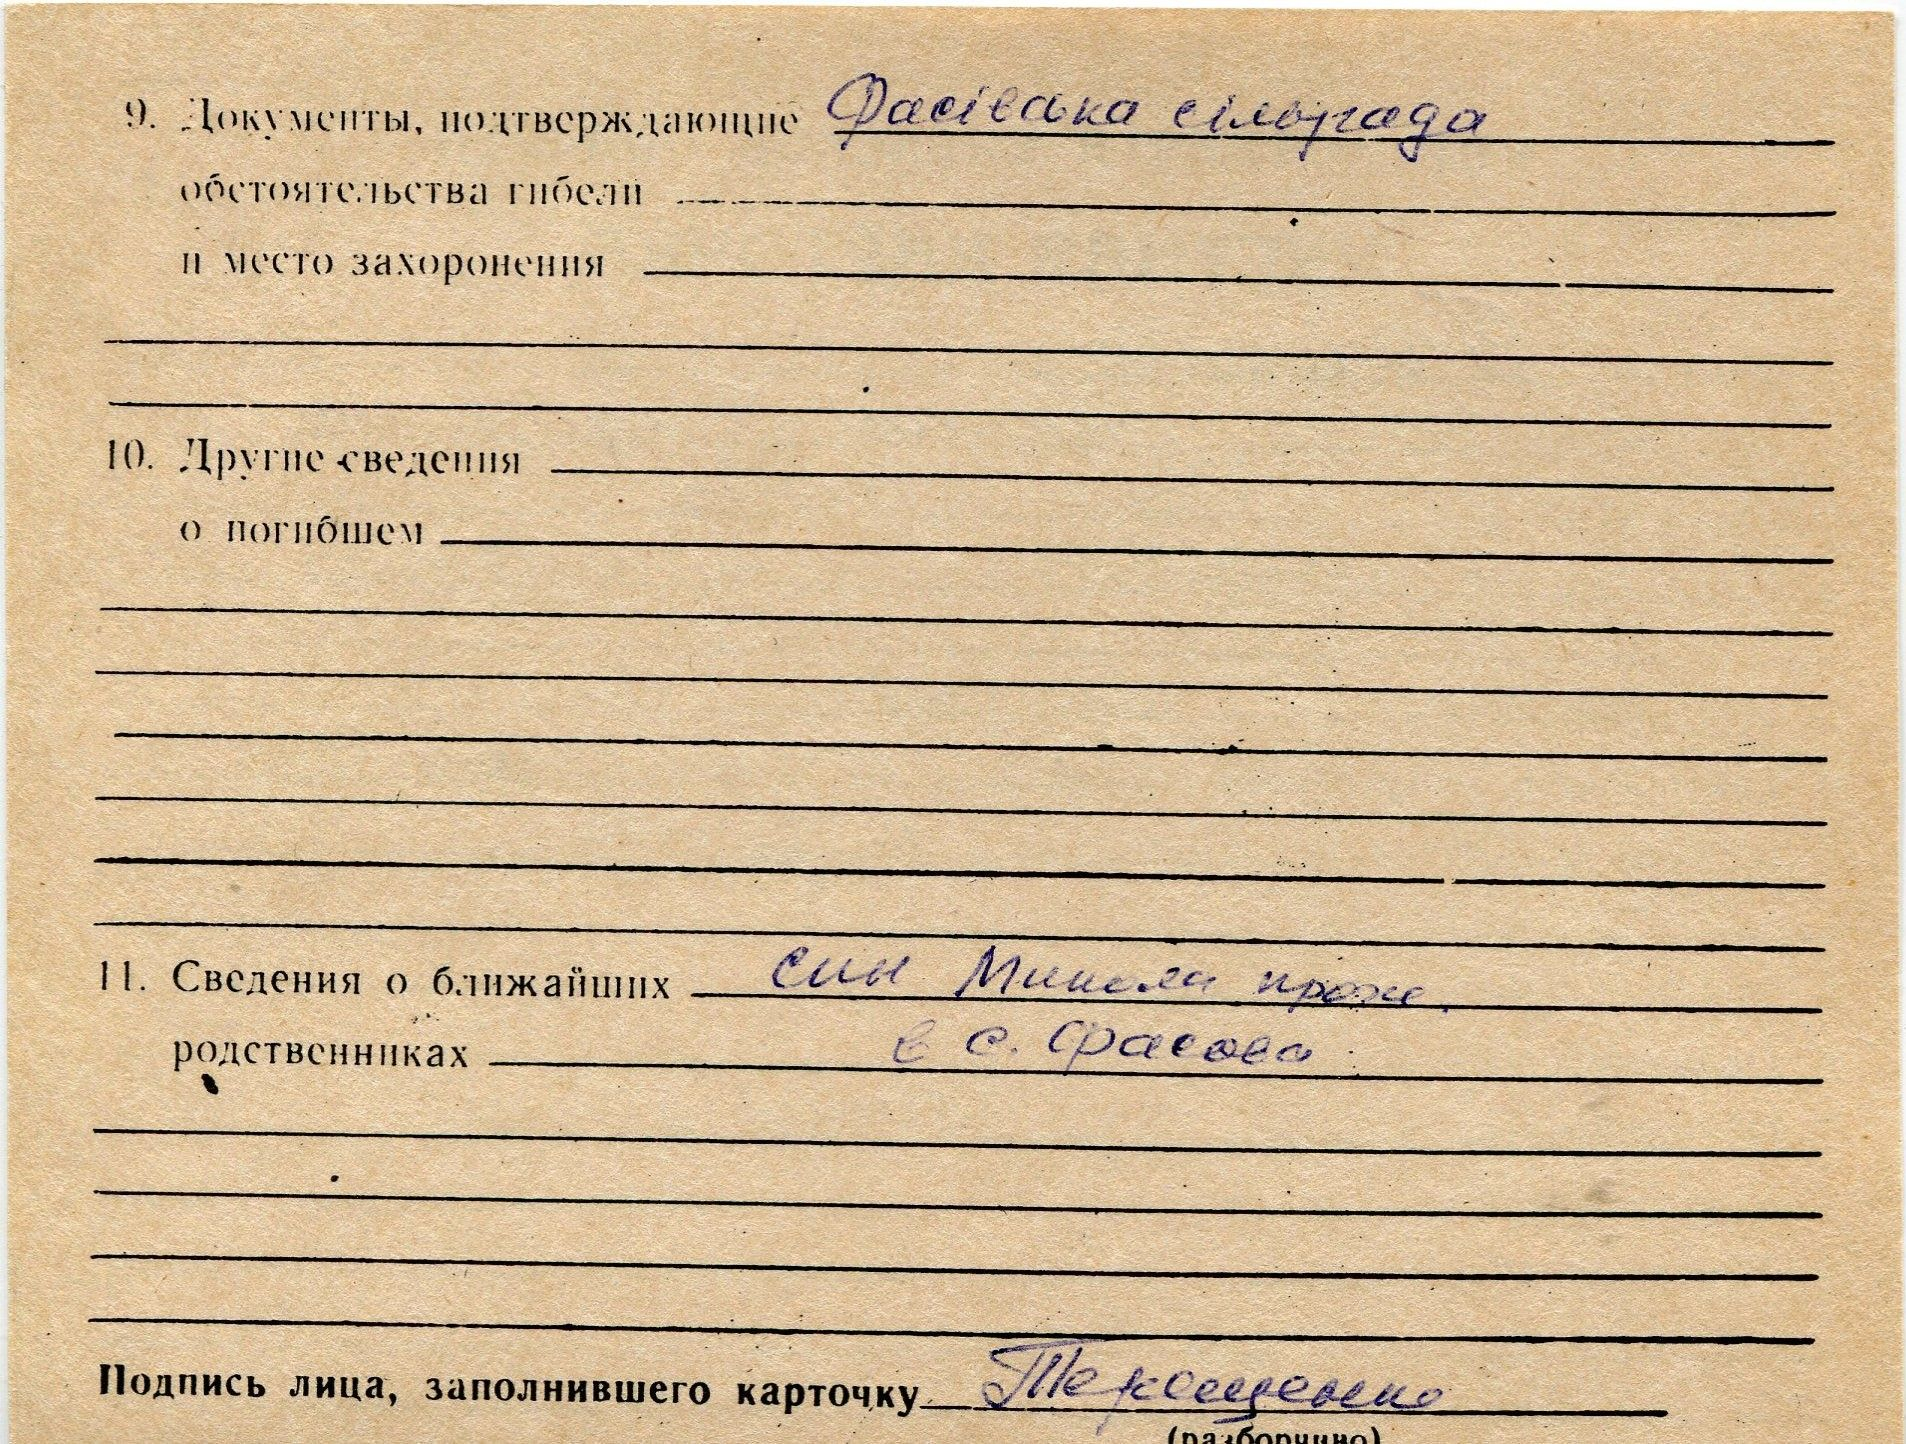 9. Документы, подтверждающие Фасівська сільрада
обстоятельства гибели
и место захоронения
10. Другие сведения
о погибшем
11. Сведения о ближайших син Микола прож.
родственниках в с. Фасова
Подпись лица, заполнившего карточку Терещенко
(разборчиво)